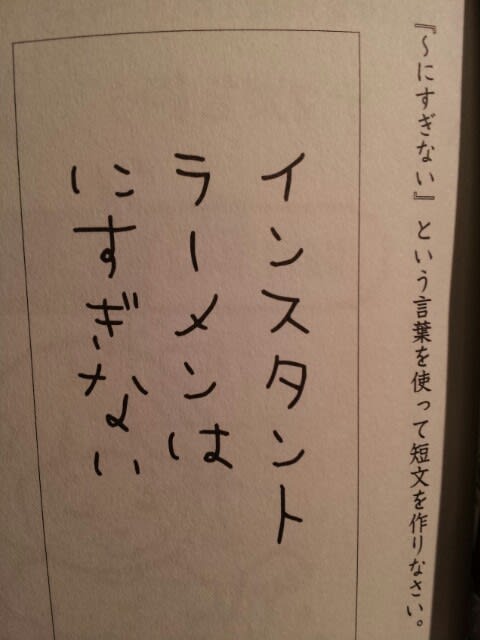 『～にすぎない』という言葉を使って短文を作りなさい。
インスタント
ラーメンは
にすぎない